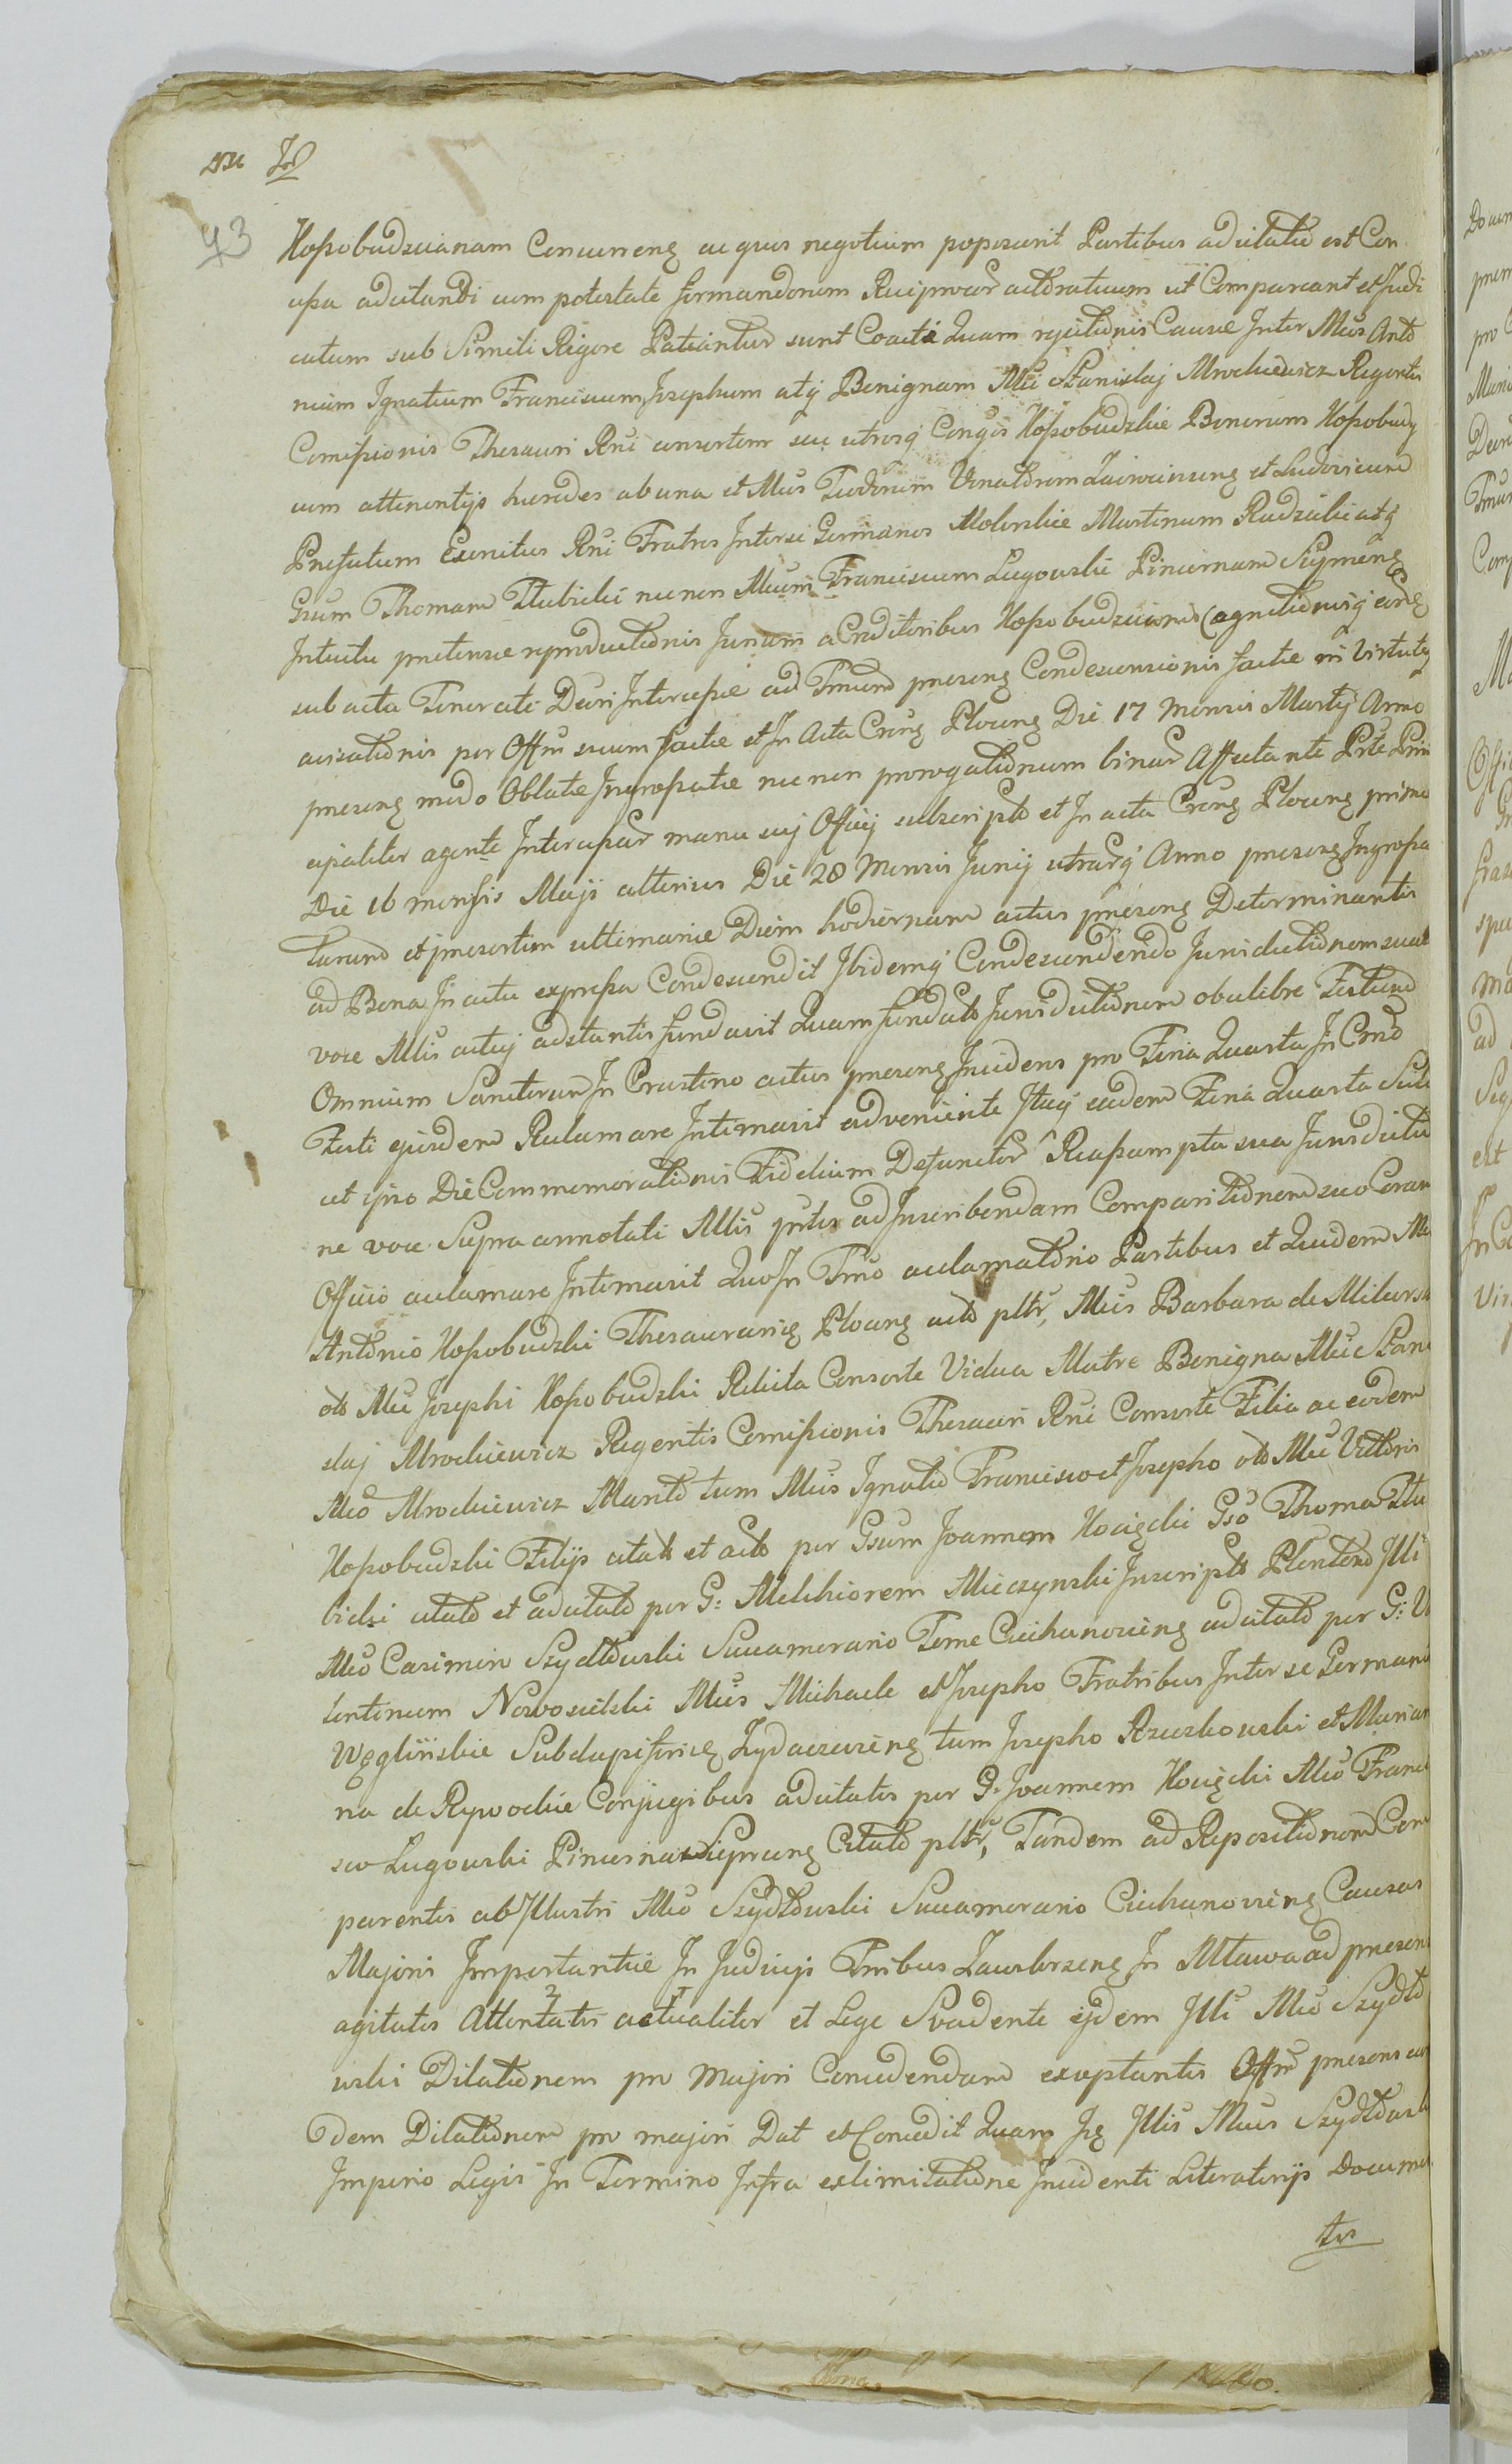 43
Kossobudzcianam Concurreng ac quos negotium poposcerit Partibus ad citatio est Con
cessa adcitandi cum potestate formandorum Reciprocar actoratuum ut Compareant et Judi
catum sub Simili Rigore Patiantur sunt Coacti Quam rejectionis Causae Inter Mcos Anto
nium Ignatium Franciscum Josephum atq Benignam Mci Stanislaj Mrockiewicz Regentis
Comissionis Thesauri Rni consortem seu utrosq Conges Kossobudzkie Bonorum Kossobudy
cum attinentijs haeredes ab una et Mcos Teodorum Venatorem et Ludovicum
Praefatum Exercitus Rni Fratres Inter se Germanos Molenskie Martinum Rudzicki atq
Gsum Thomam Stubicki nec non Mcum Franciscum Lugowski Pincernam
Intuitu praetensae reproductionis Jurium a Creditoribus Kossobudzcianis agnitionisq
sub acta Decri Intercessae ad Tmum praeseng Condescensionis factae in Virtute
per Offm suum factae et In Acta Creng Ploceng Die 17 Mensis Martij Anno
praeseng modo Oblatae Ingrossatae nec non prorogationum binar Affectante Prte Prin
cipaliter agente Intercessar manu suj Officij subscripto et In acta Creng Ploceng primae
Die 16 mensis Maji alterius Die 28 Mensis Junij utrarq Anno praeseng Ingrossa
tarum et praesertim ultimariae Diem hodiernam actus praeseng Determinantis
ad Bona In actu expressa Condescendit Ibidemq Condescendendo Jurisdictionem suam
voce Mlis actuj adstantis fundavit Quam fundato Jurisdictionem ob celibre Festum
Omnium Sanctorum In Crastino actus praeseng Incidens pro Feria Quarta In Crno
Festi ejusdem Reclamare Intimavit adveniente Itaq eadem Feria Quarta
ut ipso Die Commemorationis Fidelium Defunctor Reassumpta sua Jurisdictio
ne voce Supra annotati Mlis ad Inscribendam Comparitionem suo Coram
Officio acclamare Intimavit Quo In Tmo acclamatorio Partibus et Quidem Mco
Antonio Kossobudzki Thesaurarig Ploceng acto pltr, Mcis Barbara de
olo Mci Josephi Kossobudzki Relicta Consorte Vidua Matre Benigna Mci Stani
slaj Mrockiewicz Regentis Comissionis Thesauri Rni Consorte Filia ac eodem
Mco Mrockiewicz Marito tum Mcis Ignatio Francisco et Josepho olo Mci Victoris
Kossobudzki Filijs citatis et actis per Gsum Joannem Kocięcki Gso Thoma Stu
bicki citato et adcitato per G: Melchiorem Mieczynski Inscripto Plentem Illi
Mco Casimiro Szydłowski Succamerario Terrae Ciechanovieng adcitato per G: Va
lentinum Nowosielski Mcis Michaele et Josepho Fratribus Inter se Germanis
Węglińskie Subdapiferieg Zydaczovieng tum Josepho Rzuskowski et Marian
na de Rywockie Conjugibus adcitatis per G: Joannem Kocięcki Mco Franci
sco Lugowski Pincerna Citato pltr, Tandem ad Repositionem Com
parentis ab Illustri Mco Szydłowski Succamerario Ciechanovieng Causas
Majoris Importantiae In Judicijs Tmibus Zawkrzeng In Mława ad praesens
agitatis Attentatis actualiter et Lege Svadente ejdem Illi Mco Szydło
wski Dilationem pro Majori Concedendam exoptantis Offm praesens ean
dem Dilationem pro majori Dat et Concedit Quam Illis Mcus Szydłowski
Imperio Legis In Termino Infra ex limitatione Incidenti Literatorijs Docume
tis